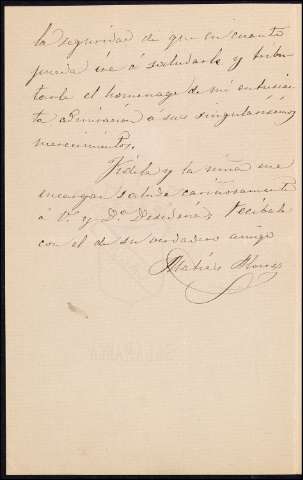 la seguridad de que en cuanto
pueda iré á saludarle y tribu-
tarle el homenage de mi entusias-
ta admiración a sus singularísimos
merecimientos.
Fidela y la niña me
encargan salude cariñosamente
á V. y Dª Desideria, y recíbalo
con el de su verdadero amigo
Matías Alonso